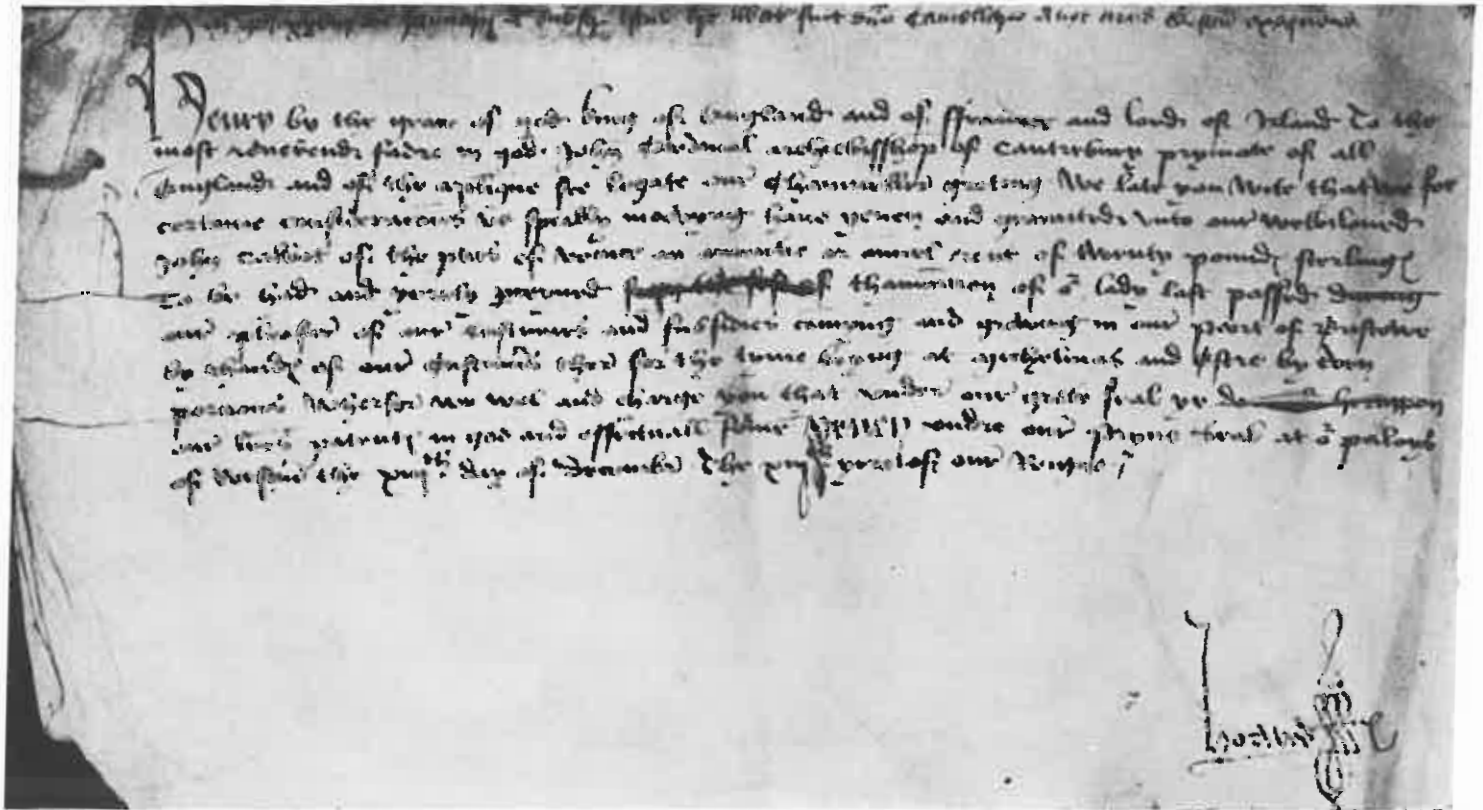 Henry by the grace of god king of England and of ffraunce and lord of Irland To the
most reverend fadre in god John Cardinal archebisshop of Cantrebury prymate of all
England and of the apolique see legate our Chaunceller greting We late you wite that we for
certaine consideracions us specially moevyng have yeven and graunted unto our welbiloved
John Calbot of the parties of Venice an annuitie or annuel rent of twenty poundes sterling
To be had and yerely perceived of thanunciacion of our lady last passed during
our pleasur of our custumes and subsidies comyng and growing in our poort of Bristowe
by thandes of our custumers ther for the tyme beyng at Michelmas and Estre by even
porcions Wherfor we wol and charge you that under our grete seal ye do make heruppon
our lettres patentes in good and effectuall fourme YEVEN undre our pryve seal at our paloys
of Westm the xiijth day of Decembre The xiijth yere of our Reigne